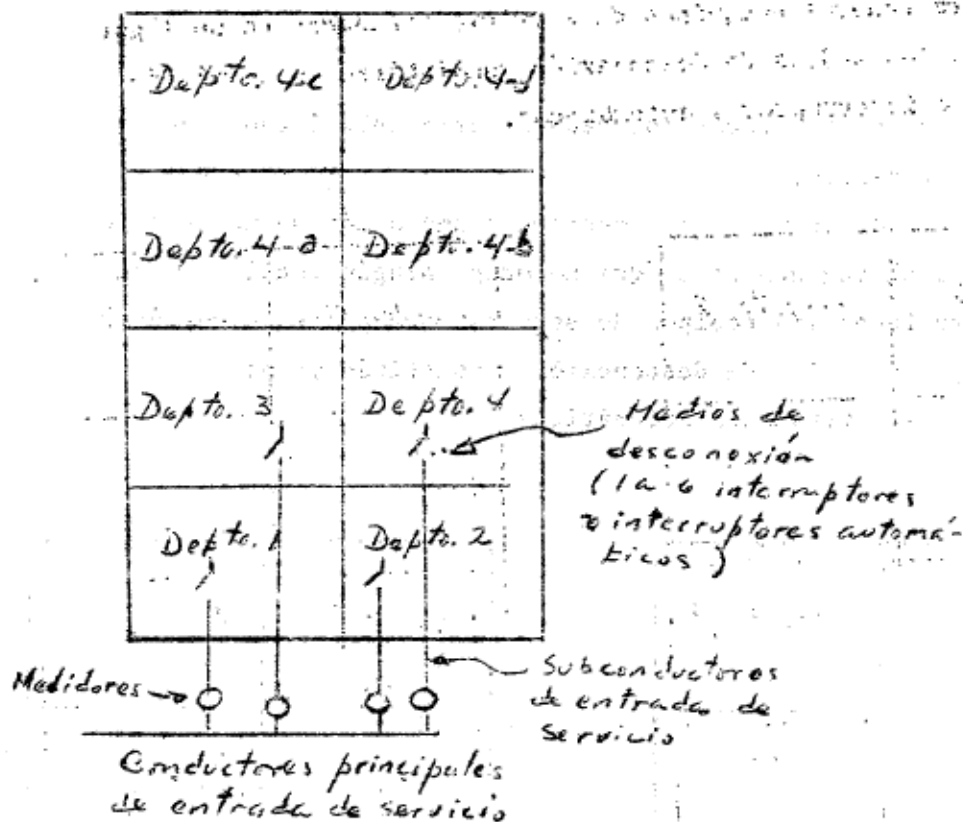 Depto. 4-c
Depto. 4-d
Depto. 4-a
Depto. 4-b
Depto. 3
Depto. 4
Medios de
desconexión
(1 a 6 interruptores
o interruptores automá-
ticos)
Depto. 1
Depto. 2
Medidores
Subconductores
de entrada de
servicio
Conductores principales
de entrada de servicio